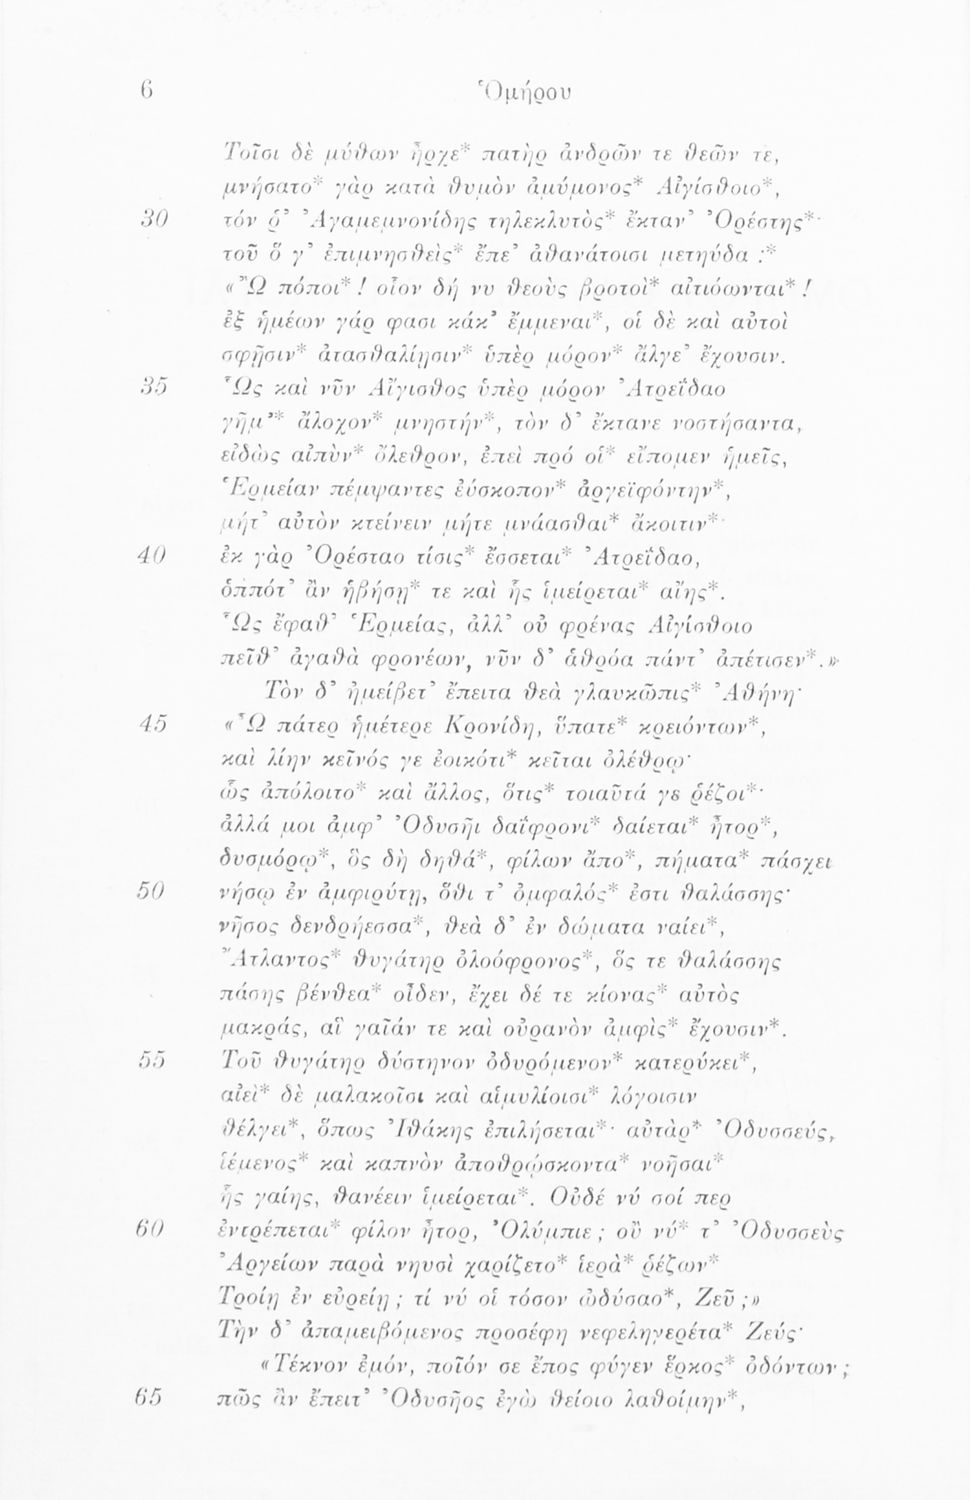 6 Ὁμήρου
Τοῖσι δὲ μύθων ἦρχε* πατὴρ ἀνδρῶν τε θεῶν τε,
μνήσατο* γὰρ κατὰ θυμὸν ἀμύμονος* Αἰγίσθοιο*,
30 τόν ῥ’ Ἀγαμεμνονίδης τηλεκλυτὸς* ἔκταν’ Ὀρέστης*·
τοῦ ὅ γ’ ἐπιμνησθεὶς* ἔπε’ ἀθανάτοισι μετηύδα :*
«Ὢ πόποι* ! οἷον δή νυ θεοὺς βροτοὶ* αἰτιόωνται* !
ἐξ ἡμέων γάρ φασι κάκ’ ἔμμεναι*, οἱ δὲ καὶ αὐτοὶ
σφῇσιν* ἀτασθαλίῃσιν* ὑπὲρ μόρον* ἄλγε’ ἔχουσιν.
35 Ὣς καὶ νῦν Αἴγισθος ὑπὲρ μόρον Ἀτρεΐδαο
γῆμ’* ἄλοχον* μνηστήν*, τὸν δ’ ἔκτανε νοστήσαντα,
εἰδὼς αἰπὺν* ὄλεθρον, ἐπεὶ πρό οἱ* εἴπομεν ἡμεῖς,
Ἑρμείαν πέμψαντες ἐύσκοπον* ἀργεϊφόντην*,
μήτ’ αὐτὸν κτείνειν μήτε μνάασθαι* ἄκοιτιν*·
40 ἐκ γὰρ Ὀρέσταο τίσις* ἔσσεται* Ἀτρεΐδαο,
ὁππότ’ ἂν ἡβήσῃ* τε καὶ ἧς ἱμείρεται* αἴης*.
Ὣς ἔφαθ’ Ἑρμείας, ἀλλ’ οὐ φρένας Αἰγίσθοιο
πεῖθ’ ἀγαθὰ φρονέων, νῦν δ’ ἁθρόα πάντ’ ἀπέτισεν*.»
Τὸν δ’ ἠμείβετ’ ἔπειτα θεὰ γλαυκῶπις* Ἀθήνη·
45 «Ὦ πάτερ ἡμέτερε Κρονίδη, ὕπατε* κρειόντων*,
καὶ λίην κεῖνός γε ἐοικότι* κεῖται ὀλέθρῳ·
ὣς ἀπόλοιτο* καὶ ἄλλος, ὅτις* τοιαῦτά γε ῥέζοι*·
ἀλλά μοι ἀμφ’ Ὀδυσῆι δαΐφρονι* δαίεται* ἦτορ*,
δυσμόρῳ*, ὃς δὴ δηθά*, φίλων ἄπο*, πήματα* πάσχει
50 νήσῳ ἐν ἀμφιρύτῃ, ὅθι τ’ ὀμφαλός* ἐστι θαλάσσης·
νῆσος δενδρήεσσα*, θεὰ δ’ ἐν δώματα ναίει*,
Ἄτλαντος* θυγάτηρ ὀλοόφρονος*, ὅς τε θαλάσσης
πάσης βένθεα* οἶδεν, ἔχει δέ τε κίονας* αὐτὸς
μακράς, αἳ γαῖάν τε καὶ οὐρανὸν ἀμφὶς* ἔχουσιν*.
55 Τοῦ θυγάτηρ δύστηνον ὀδυρόμενον* κατερύκει*,
αἰεὶ* δὲ μαλακοῖσι καὶ αἱμυλίοισι* λόγοισιν
θέλγει*, ὅπως Ἰθάκης ἐπιλήσεται*· αὐτὰρ* Ὀδυσσεύς,
ἱέμενος* καὶ καπνὸν ἀποθρῴσκοντα* νοῆσαι*
ἧς γαίης, θανέειν ἱμείρεται*. Οὐδέ νύ σοί περ
60 ἐντρέπεται* φίλον ἦτορ, Ὀλύμπιε ; οὔ νύ* τ’ Ὀδυσσεὺς
Ἀργείων παρὰ νηυσὶ χαρίζετο* ἱερὰ* ῥέζων*
Τροίῃ ἐν εὐρείῃ ; τί νύ οἱ τόσον ὠδύσαο*, Ζεῦ ;»
Τὴν δ’ ἀπαμειβόμενος προσέφη νεφεληγερέτα* Ζεύς·
«Τέκνον ἐμόν, ποῖόν σε ἔπος φύγεν ἕρκος* ὀδόντων ;
65 πῶς ἂν ἔπειτ’ Ὀδυσῆος ἐγὼ θείοιο λαθοίμην*,